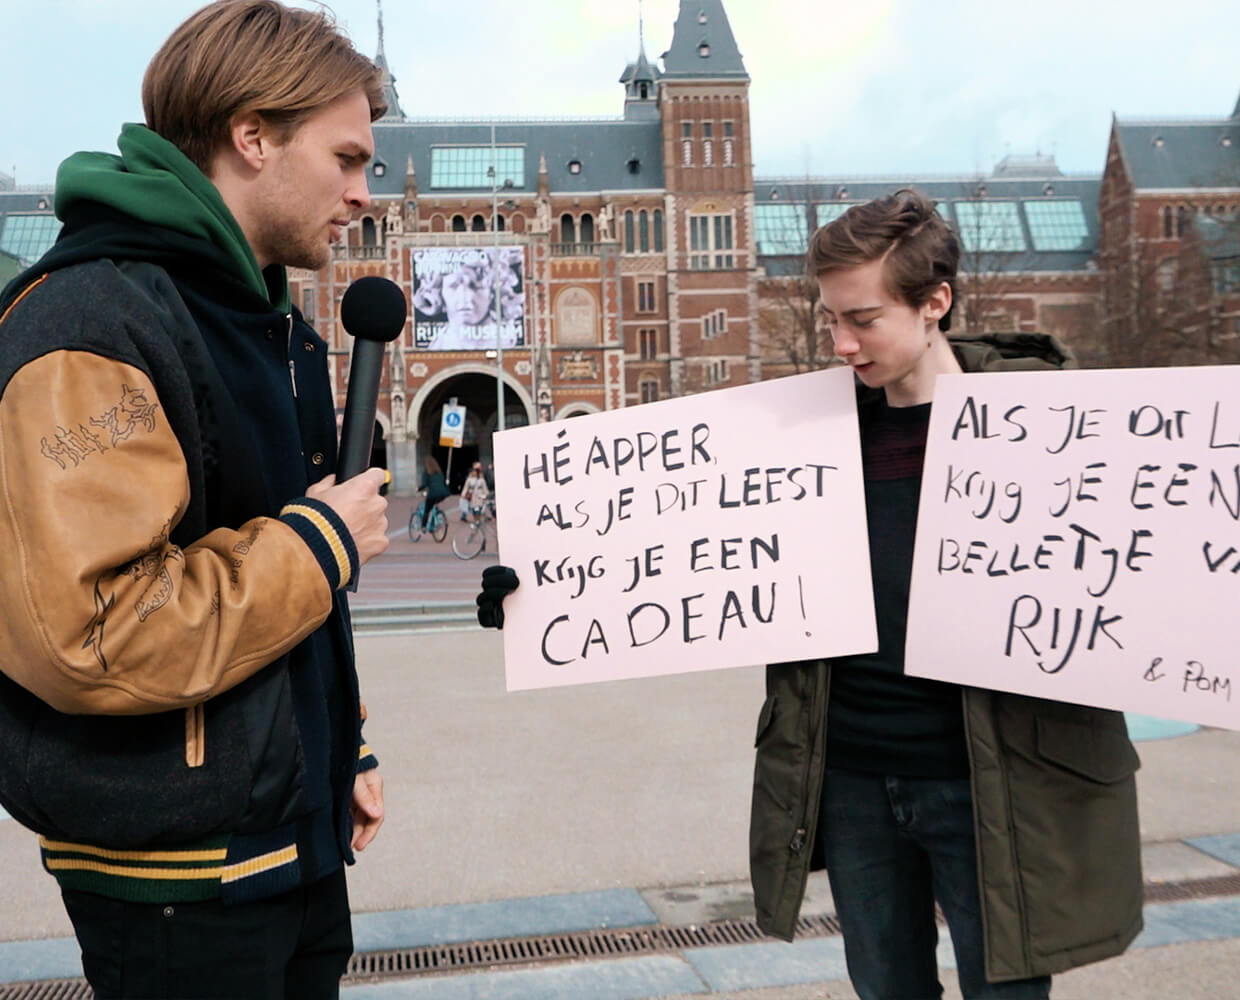 RIJKSMUSEUM
HÉ APPER,
ALS JE DIT LEEST
KRIJG JE EEN
CADEAU!
ALS JE DIT L
KRIJG JE EEN
BELLETJE VA
RIJK
& POM